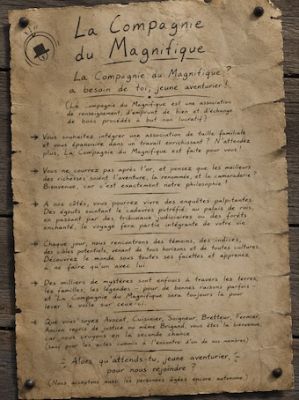 La Compagnie
du Magnifique
La Compagnie du Magnifique ?
a besoin de toi, jeune aventurier !
(La Compagnie du Magnifique est une association
de renseignement, d'emprunt de bien et d'échange
de bons procédés à but non lucratif)
→ Vous souhaitez intégrer une association de taille familiale
et vous épanouir dans un travail enrichissant ? N'attendez
plus, La Compagnie du Magnifique est faite pour vous !
→ Vous ne courrez pas après l'or, et pensez que les meilleures
des richesses soient l'aventure, la renommée, et la camaraderie ?
Bienvenue, car c'est exactement notre philosophie !
→ A nos côtés, vous pourrez vivre des enquêtes palpitantes.
Des égouts suintant le cadavre putréfié, au palais de rois,
en passant par des tribunaux judiciaires ou des forêts
enchantés, le voyage fera partie intégrante de votre vie.
→ Chaque jour, nous rencontrons des témoins, des indices,
des cibles potentiels, venant de tous horizons et de toutes cultures.
Découvrez le monde sous toutes ses facettes et apprenez
à ne faire qu'un avec lui.
→ Des milliers de mystères sont enfouis à travers les terres,
les familles, les légendes - pour de bonnes raisons parfois -
et La Compagnie du Magnifique sera toujours là pour
lever le voile sur ceux-ci.
→ Que vous soyez Avocat, Cuisinier, Soigneur, Bretteur, Fermier,
Ancien repris de justice ou même Brigand, vous êtes la bienvenue,
car nous croyons en la seconde chance
(sauf pour les actes commis à l'encontre d'un de nos membres)
Alors qu'attends-tu, jeune aventurier,
pour nous rejoindre ?
(Nous acceptons aussi les personnes âgées encore autonome)